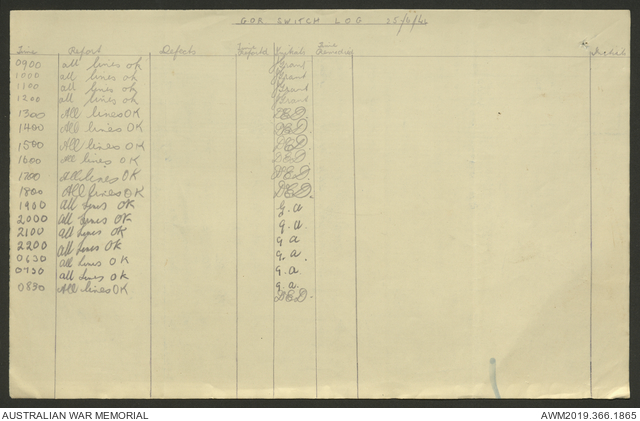 GOR SWITCH LOG
Time Report Defects Initials Initials
0900 all lines ok J Grant
1000 all lines ok J Grant
1100 all lines ok J Grant
1200 all lines ok J Grant
1300 All lines OK D.E.D.
1400 All lines OK D.E.D.
1500 All lines OK D.E.D.
1600 All lines OK D.E.D.
1700 All lines OK D.E.D.
1800 All lines OK D.E.D.
1900 all lines OK G.a
2000 all lines OK G.a
2100 all lines OK G.a
2200 all lines OK G.a
0630 all lines OK G.a
0730 all lines OK G.a.
0830 All lines OK D.E.D.
AUSTRALIAN WAR MEMORIAL AWM2019.366.1865